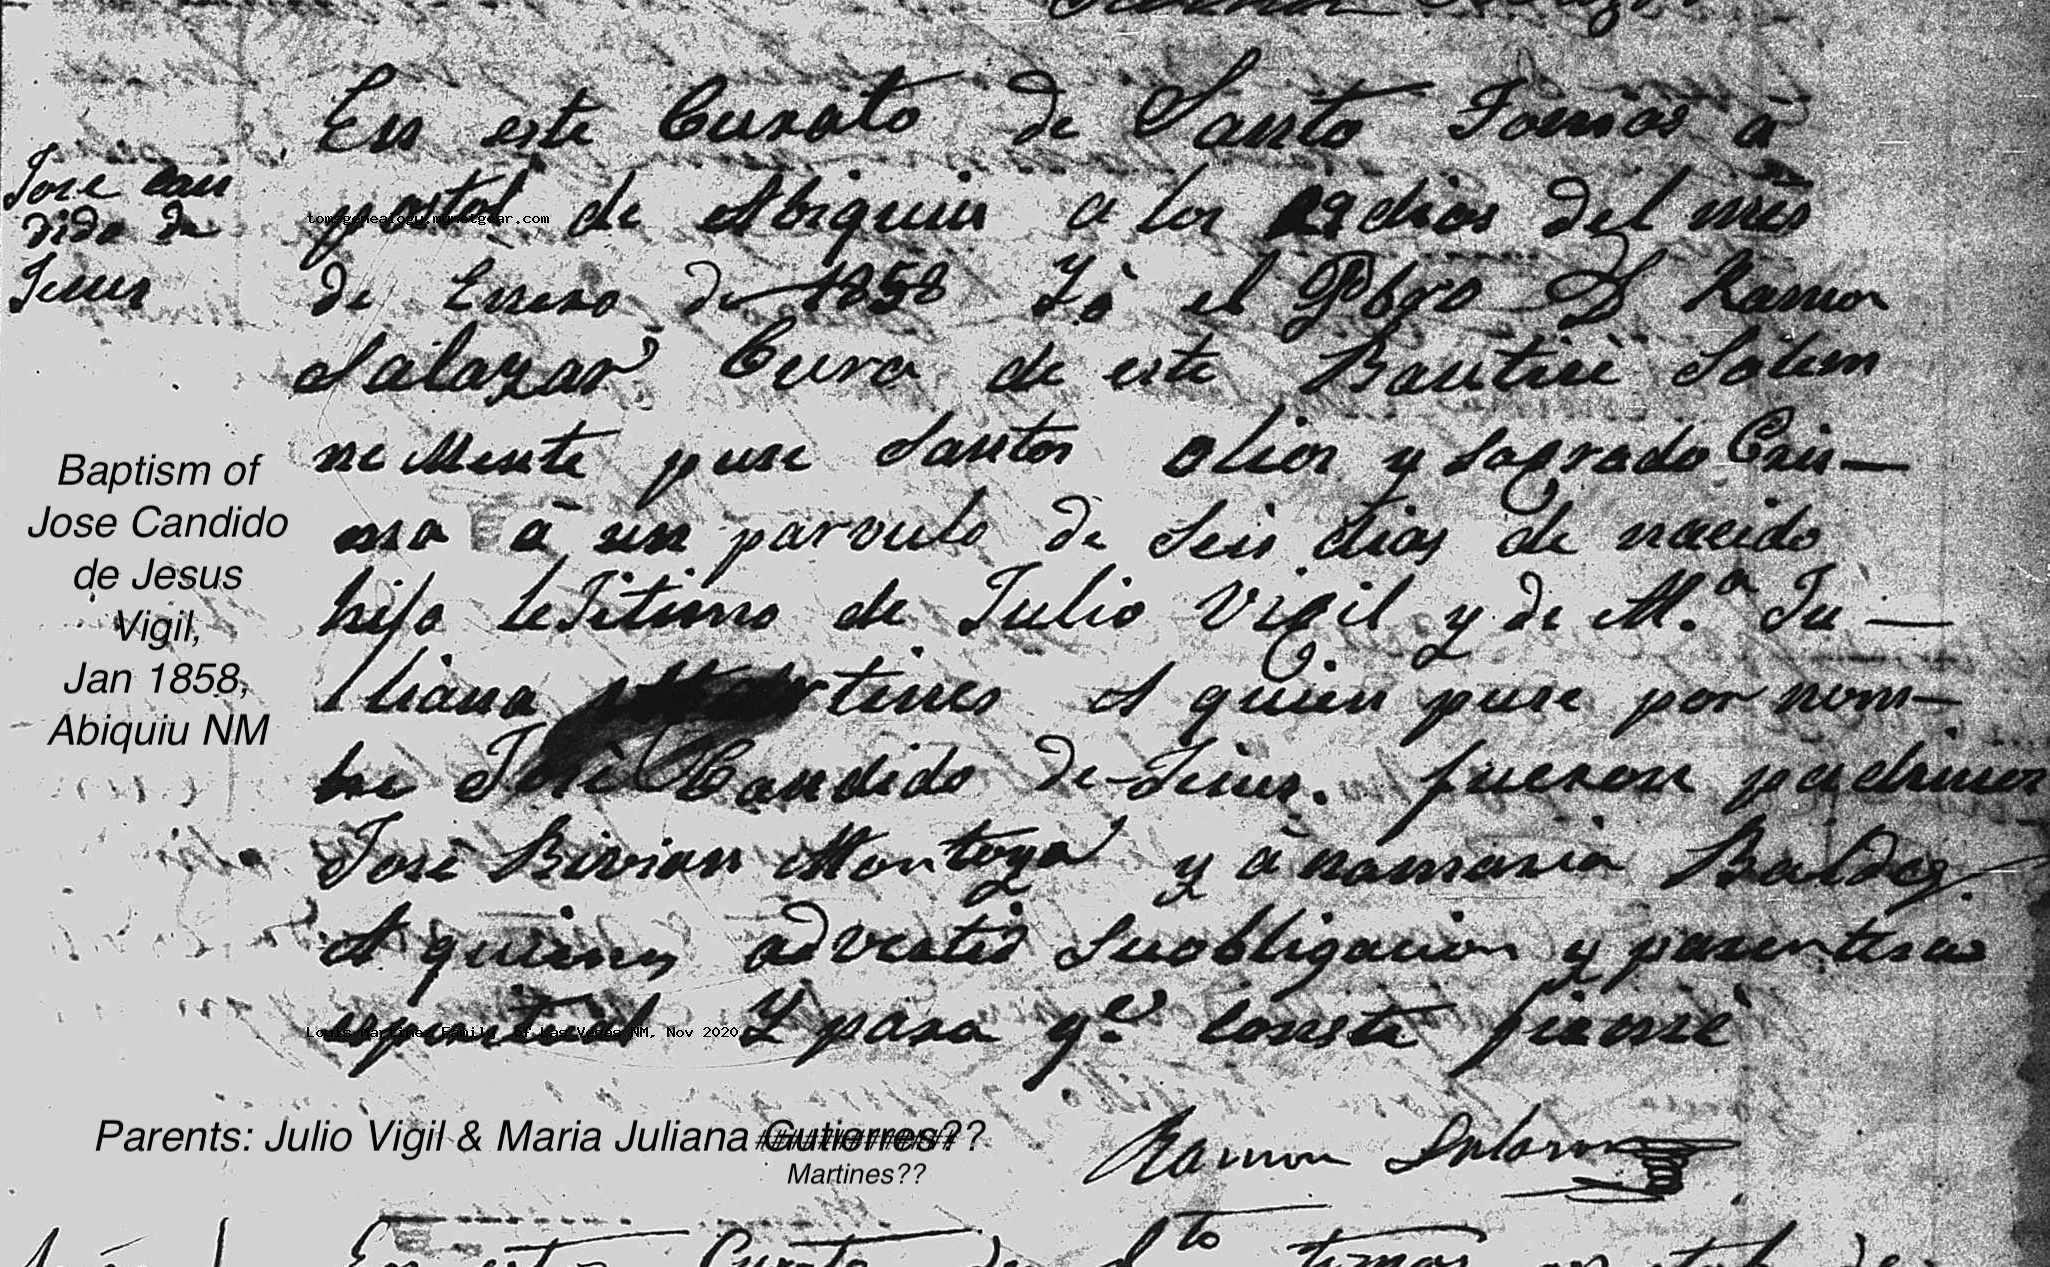 En este Curato de Santo Tomas à
postol de Abiquiu a los 29 dias del mes
de Enero de 1858 Yò el Pbro D Ramon
Salazar Cura de este Bautisè Solem
neMente puse Santos olios y Sagrado Cris—
ma à un parvulo de seis dias de nacido
hijo leJitimo de Julio Vigil y de M.ª Ju—
liana Martines A quien puse por nom—
bre Josè Candido de Jesus. fueron padrinos
Josè Bivian Montoya y ànamaria Baldez
A quienes adverti su obligacion y parentesco
espiritual Y para q.e conste firmè
Ramon Salazar
Jose can
dido de
Jesus
Baptism of
Jose Candido
de Jesus
Vigil,
Jan 1858,
Abiquiu NM
tomsgenealogy.mynetgear.com
Louis Martinez Family of Las Vegas NM, Nov 2020
Parents: Julio Vigil & Maria Juliana Gutierres??
Martines??
En este Curato de Sto tomas apostol de